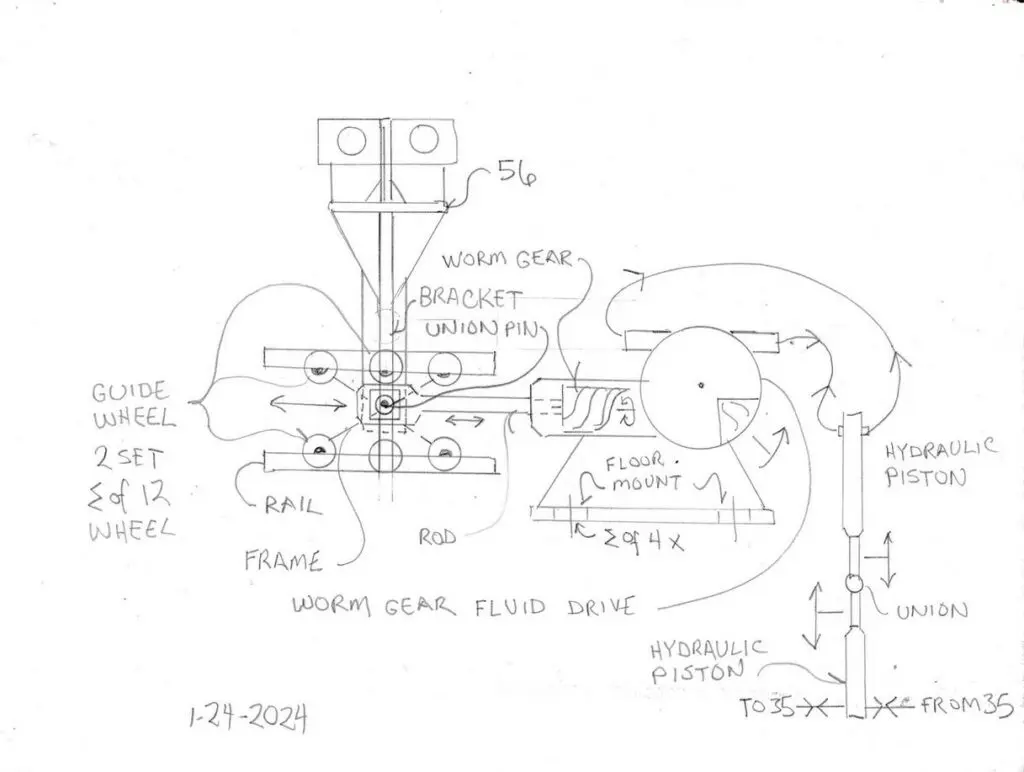 56
WORM GEAR
BRACKET
UNION PIN
GUIDE
WHEEL
2 SET
Σ of 12
WHEEL
RAIL
FRAME
ROD
FLOOR
MOUNT
Σ of 4X
HYDRAULIC
PISTON
WORM GEAR FLUID DRIVE
UNION
HYDRAULIC
PISTON
TO 35
FROM 35
1-24-2024